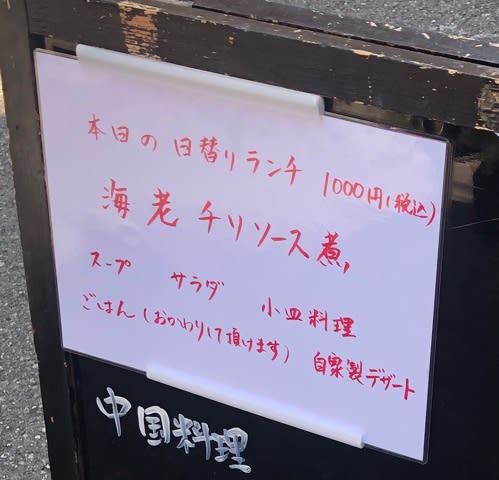 本日の日替りランチ 1000円(税込)
海老チリソース煮
スープ サラダ 小皿料理
ごはん(おかわりして頂けます) 自家製デザート
中国料理